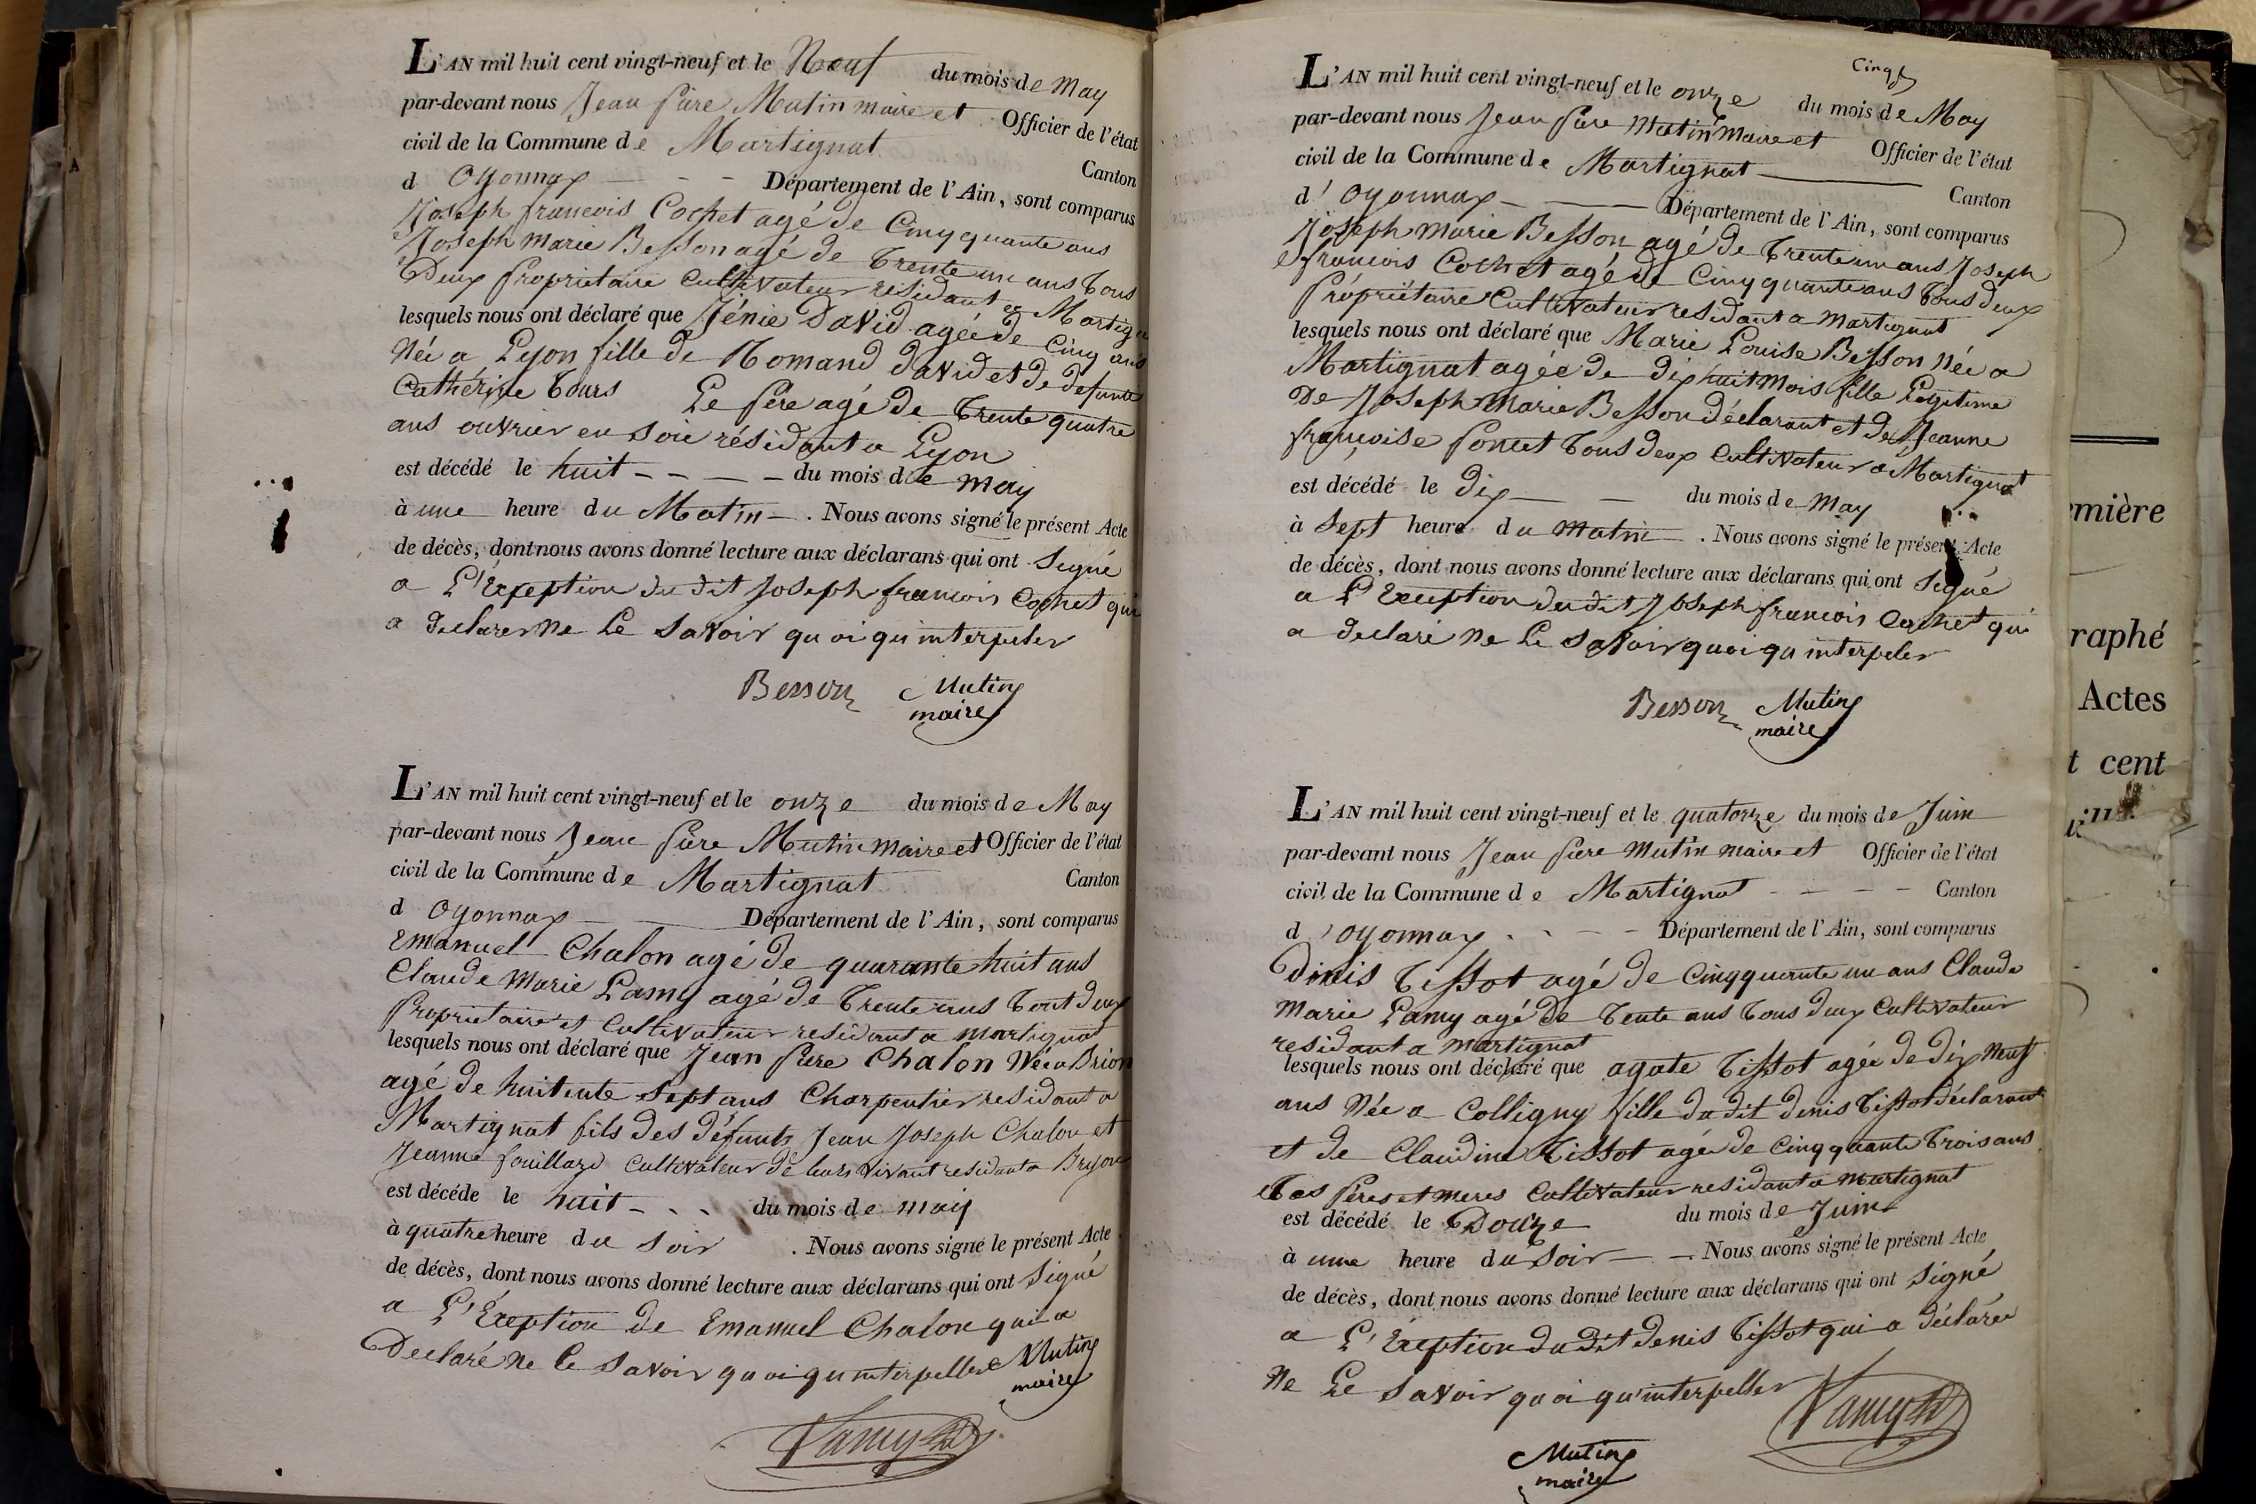 L'AN mil huit cent vingt-neuf et le Neuf du mois de May
par-devant nous Jean Pière Mutin maire et Officier de l'état
civil de la Commune de Martignat Canton
d Oyonnax - - - Département de l'Ain, sont comparus
Joseph francois Cochet agé de Cinqquante ans
Joseph Marie Besson agé de Trente un ans Tous
Deux Propriétaire Cultivateur résidant a Martig
lesquels nous ont déclaré que Jénie David agée de Cinq ans
Née a Lyon fille de Romand David et de defunte
Cathérine Tours Le Père agé de Trente quatre
ans ouvrier en soie résidant a Lyon
est décédé le huit - - - - du mois de may
à une heure du Matin - . Nous avons signé le présent Acte
de décès, dont nous avons donné lecture aux déclarans qui ont Signé
a L'Exception du dit Joseph francois Cochet qui
a declarer Ne Le Savoir quoi qu interpeler
Besson Mutin
maire
L'AN mil huit cent vingt-neuf et le onze du mois de May
par-devant nous Jean Pière Mutin maire et Officier de l'état
civil de la Commune de Martignat Canton
d Oyonnax Département de l'Ain, sont comparus
Emanuel Chalon agé de quarante huit ans
Claude Marie Lamy agé de Trente ans Tout deux
Proprietaire et Cultivateur residant a Martignat
lesquels nous ont déclaré que Jean Piere Chalon Née a Brion
agé de huitente sept ans Charpentier residant a
Martignat fils des défunts Jean Joseph Chalon et
Jeanne fouillard Cultivateur de leurs vivant residant a Bryon
est décéde le huit - - - du mois de may
à quatre heure du Soir . Nous avons signé le présent Acte
de décès, dont nous avons donné lecture aux déclarans qui ont Signé
a L'Exeption de Emanuel Chalon qui a
Declaré Ne Le Savoir quoi qu interpeller Mutin
maire
Lamy
Cinq
L'AN mil huit cent vingt-neuf et le onze du mois de May
par-devant nous Jean Piere Mutin Maire et Officier de l'état
civil de la Commune de Martignat Canton
d'Oyonnax - Département de l'Ain, sont comparus
Joseph Marie Besson agé de Trente un ans Joseph
francois Cochet agé de Cinqquante ans Tous deux
Propriétaire Cultivateur residant a Martignat
lesquels nous ont déclaré que Marie Louise Besson Née a
Martignat agée de dix huit Mois fille Legitime
De Joseph Marie Besson déclarant et de Jeanne
françoise Poncet Tous deux Cultivateur a Martignat
est décédé le dix - - du mois de May
à Sept heure du matin - . Nous avons signé le présent Acte
de décès, dont nous avons donné lecture aux déclarans qui ont Signé
a L'Exception du dit Joseph francois Cochet qui
a declaré Ne Le Savoir quoi qu interpeler
Besson Mutin
maire
L'AN mil huit cent vingt-neuf et le quatorze du mois de Juin
par-devant nous Jean Piere Mutin maire et Officier de l'état
civil de la Commune de Martignat - - - - Canton
d'Oyonnax - - - - Département de l'Ain, sont comparus
Dinis Tissot agé de Cinqquante un ans Claude
Marie Lamy agé de Tente ans Tous deux Cultivateur
residant a Martignat
lesquels nous ont déclaré que agate Tissot agée de dix Neuf
ans Née a Colligny fille du dit denis Tissot déclarant
et de Claudine Tissot agée de Cinqquante Trois ans
Pères et Meres Cultivateur residant a Martignat
est décédé le Douze du mois de Juin
à une heure du Soir - - Nous avons signé le présent Acte
de décès, dont nous avons donné lecture aux déclarans qui ont Signé
a L'Exeption du dit denis Tissot qui a déclarér
Ne Le Savoir quoi qu'interpeller
Lamy
Mutin
maire
mière
raphé
Actes
t cent